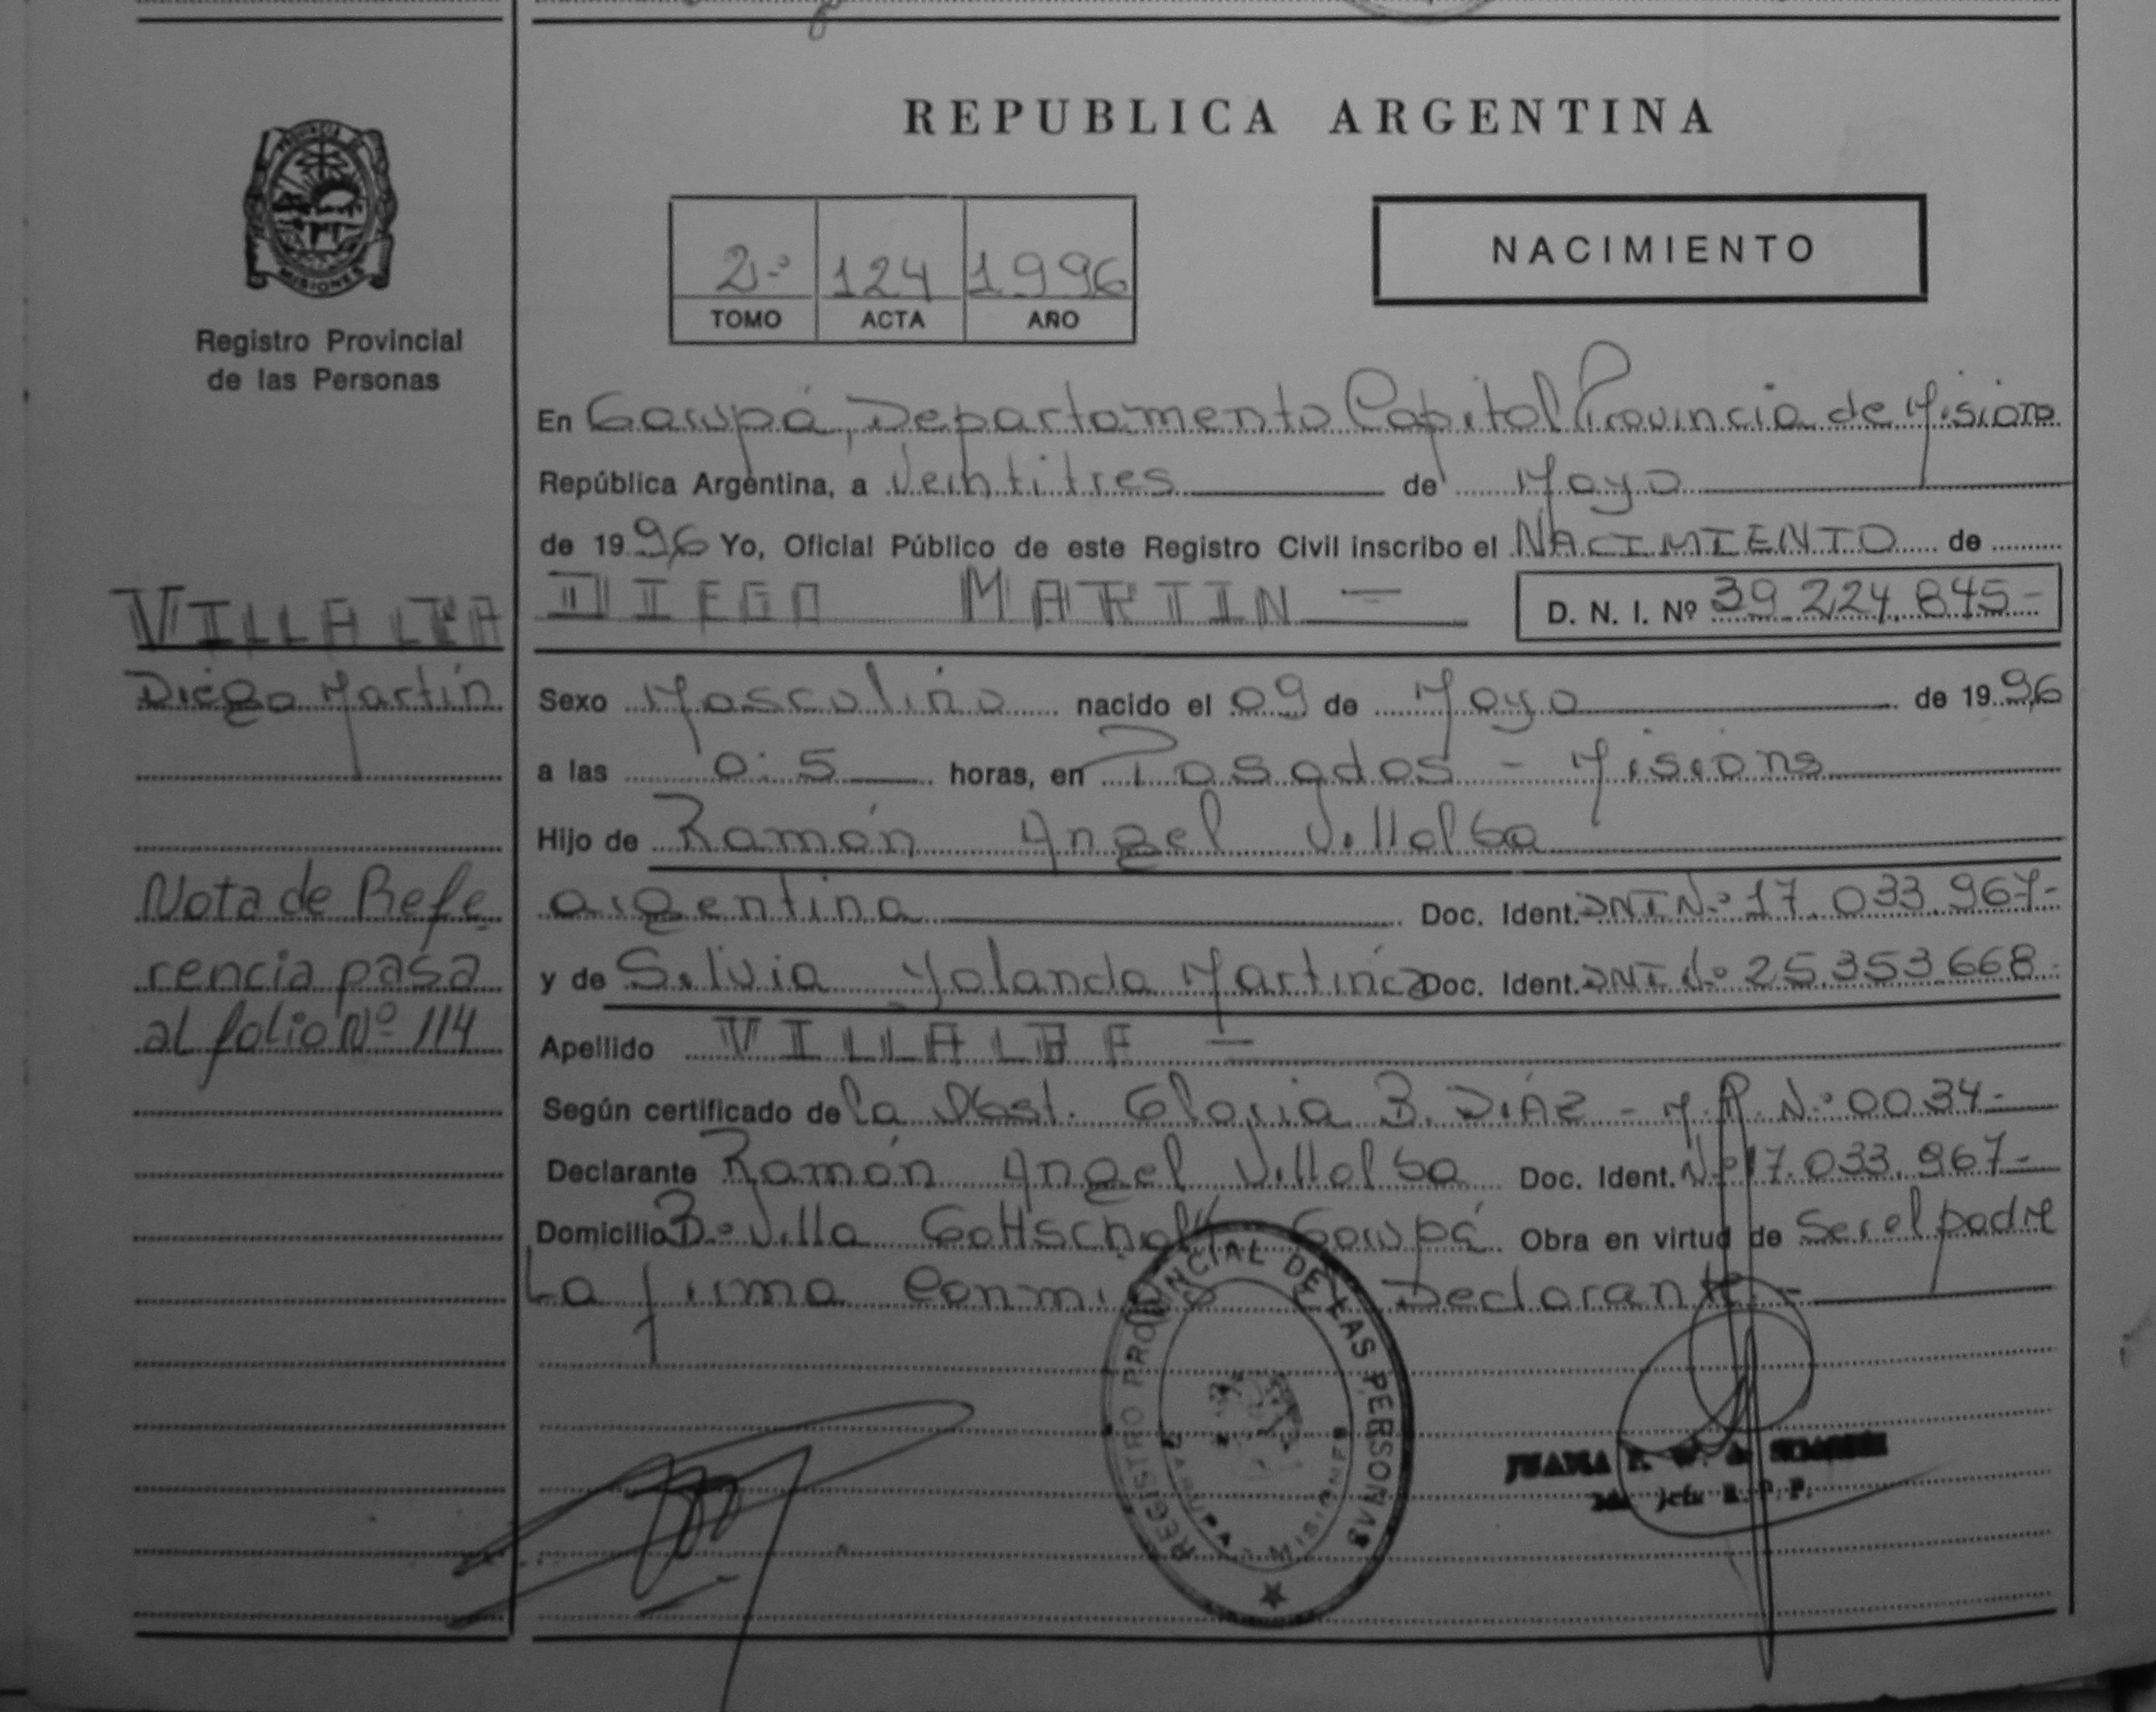 REPUBLICA ARGENTINA
PROVINCIA DE
MISIONES
Registro Provincial
de las Personas
2º 124 1996
TOMO ACTA AÑO
NACIMIENTO
En Garupá, Departamento Capital Provincia de Misiones
República Argentina, a Veintitres de Mayo
de 1996 Yo, Oficial Público de este Registro Civil inscribo el NACIMIENTO de
VILLALBA
Diego Martín
DIEGO MARTIN - D. N. I. Nº 39.224.845-
Sexo Masculino nacido el 09 de Mayo de 1996
a las 0:5 horas, en Posadas - Misiones
Hijo de Ramón Angel Villalba
argentina Doc. Ident. DNI Nº 17.033.967-
y de Silvia Yolanda Martínez Doc. Ident. DNI Nº 25.353.668-
Apellido VILLALBA -
Según certificado de la Obst. Gloria B. DIAZ - M.P. Nº 0034-
Declarante Ramón Angel Villalba Doc. Ident. Nº 17.033.967-
Domicilio Bº Villa Garupá Obra en virtud de Ser el padre
La firma Conmigo Declarante -
Nota de Refe
rencia pasa
al folio Nº 114
REGISTRO PROVINCIAL DE LAS PERSONAS
GARUPA - MISIONES
JUANA
R. P. P.